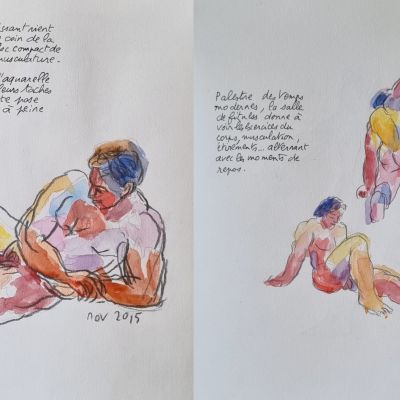 ssant vient
coin de la
oc compact de
musculature.
l'aquarelle
leurs taches
te pose
à peine
nov 2015
Palestre des temps
modernes, la salle
de fitness donne à
voir les exercices du
corps, musculation,
étirements... alternant
avec les moments de
repos.